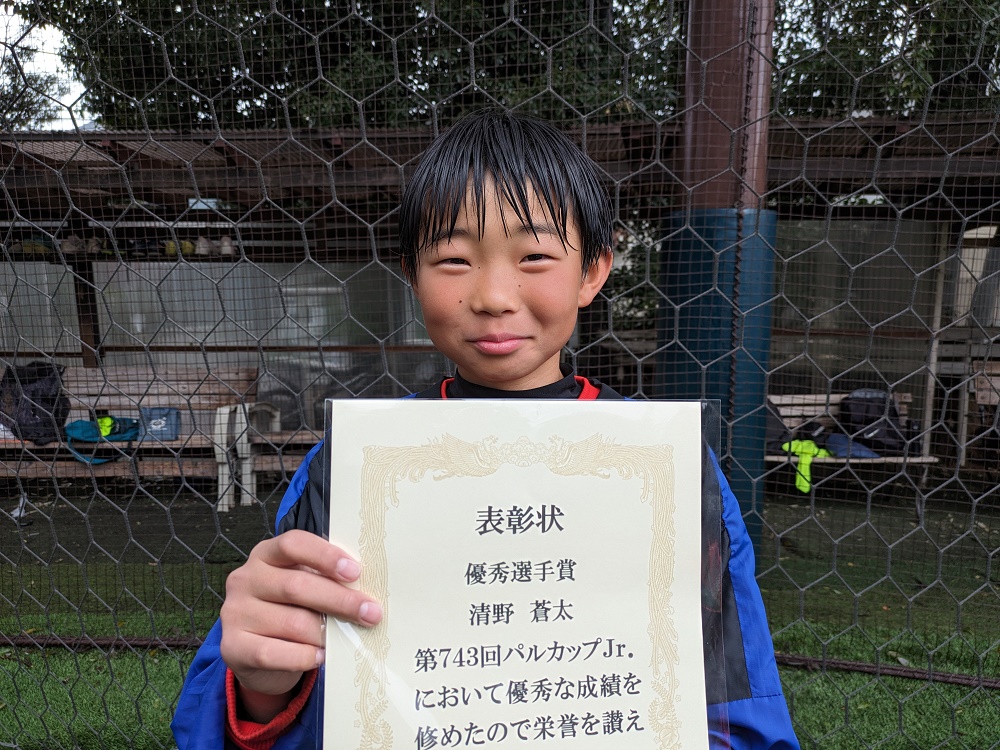 表彰状
優秀選手賞
清野 蒼太
第743回パルカップJr.
において優秀な成績を
修めたので栄誉を讃え